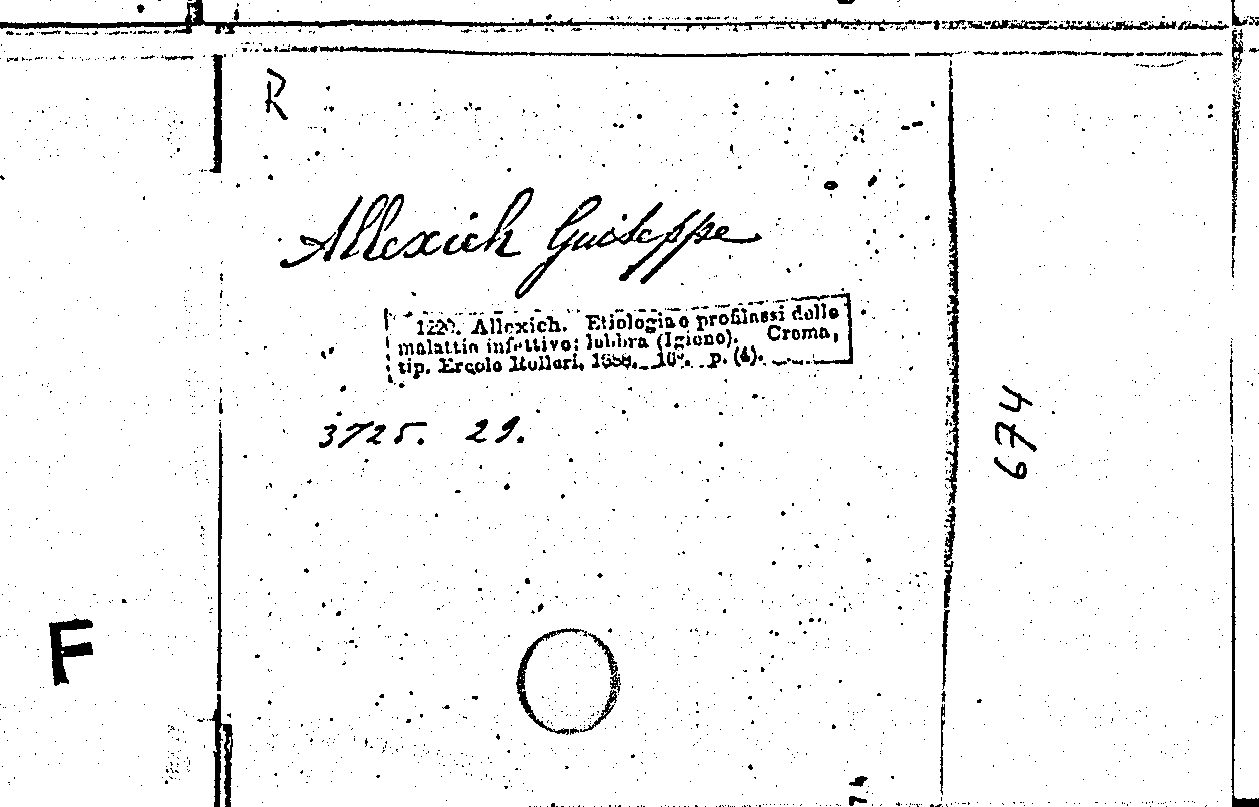 R
Allexich Guiseppe
1220. Allexich. Etiologia e profilassi delle
malattie infettive; lebbra (Igiene). Crema,
tip. Ercole Rolleri, 1888. 16°. p. (4).
3725. 29.
674
F
74